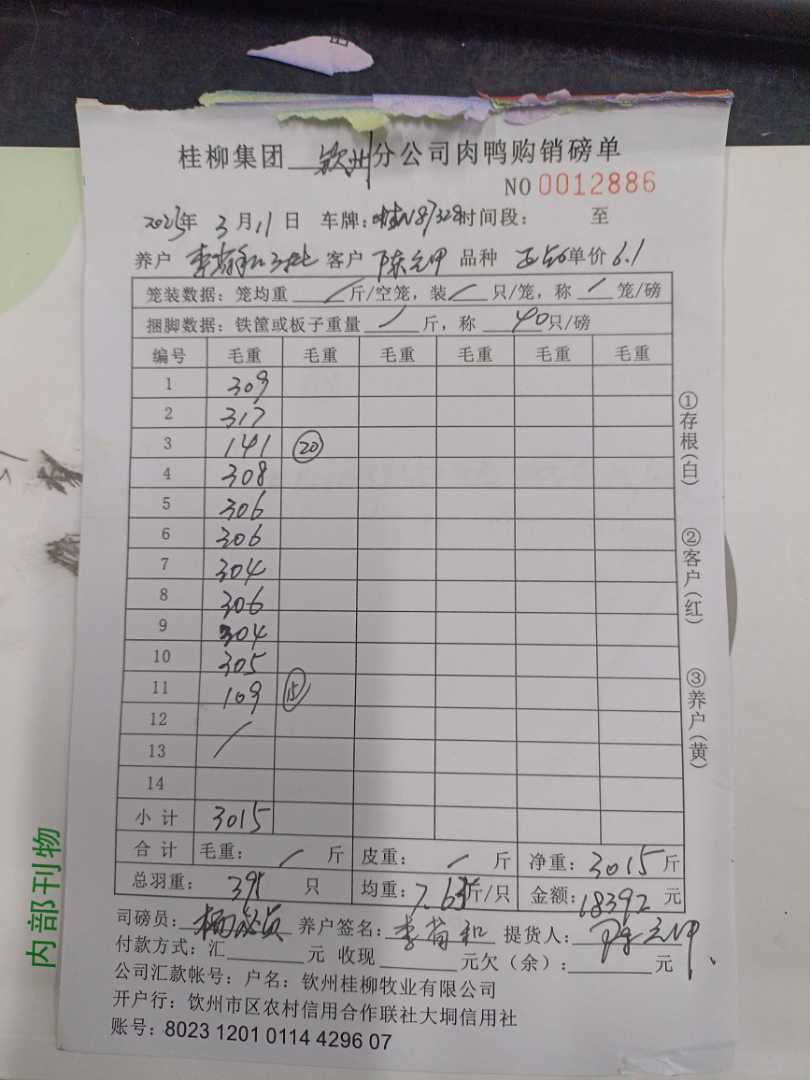 桂柳集团 钦州 分公司肉鸭购销磅单
NO 0012886
2025年 3月11日 车牌: 时间段: 至
养户 客户 陈元甲 品种 单价 6.1
笼装数据: 笼均重 / 斤/空笼, 装 / 只/笼, 称 / 笼/磅
捆脚数据: 铁筐或板子重量 / 斤, 称 40 只/磅
编号 毛重 毛重 毛重 毛重 毛重 毛重
1 309
2 317
3 141 20
4 308
5 306
6 306
7 304
8 306
9 304
10 305
11 109 15
12
13 /
14
小计 3015
合计 毛重: / 斤 皮重: / 斤 净重: 3015 斤
总羽重: 395 只 均重: 7.63 斤/只 金额: 18392 元
司磅员: 养户签名: 提货人: 陈元甲
付款方式: 汇 元 收现 元欠(余): 元
公司汇款帐号: 户名: 钦州桂柳牧业有限公司
开户行: 钦州市区农村信用合作联社大垌信用社
账号: 8023 1201 0114 4296 07
①存根(白)
②客户(红)
③养户(黄)
内部刊物